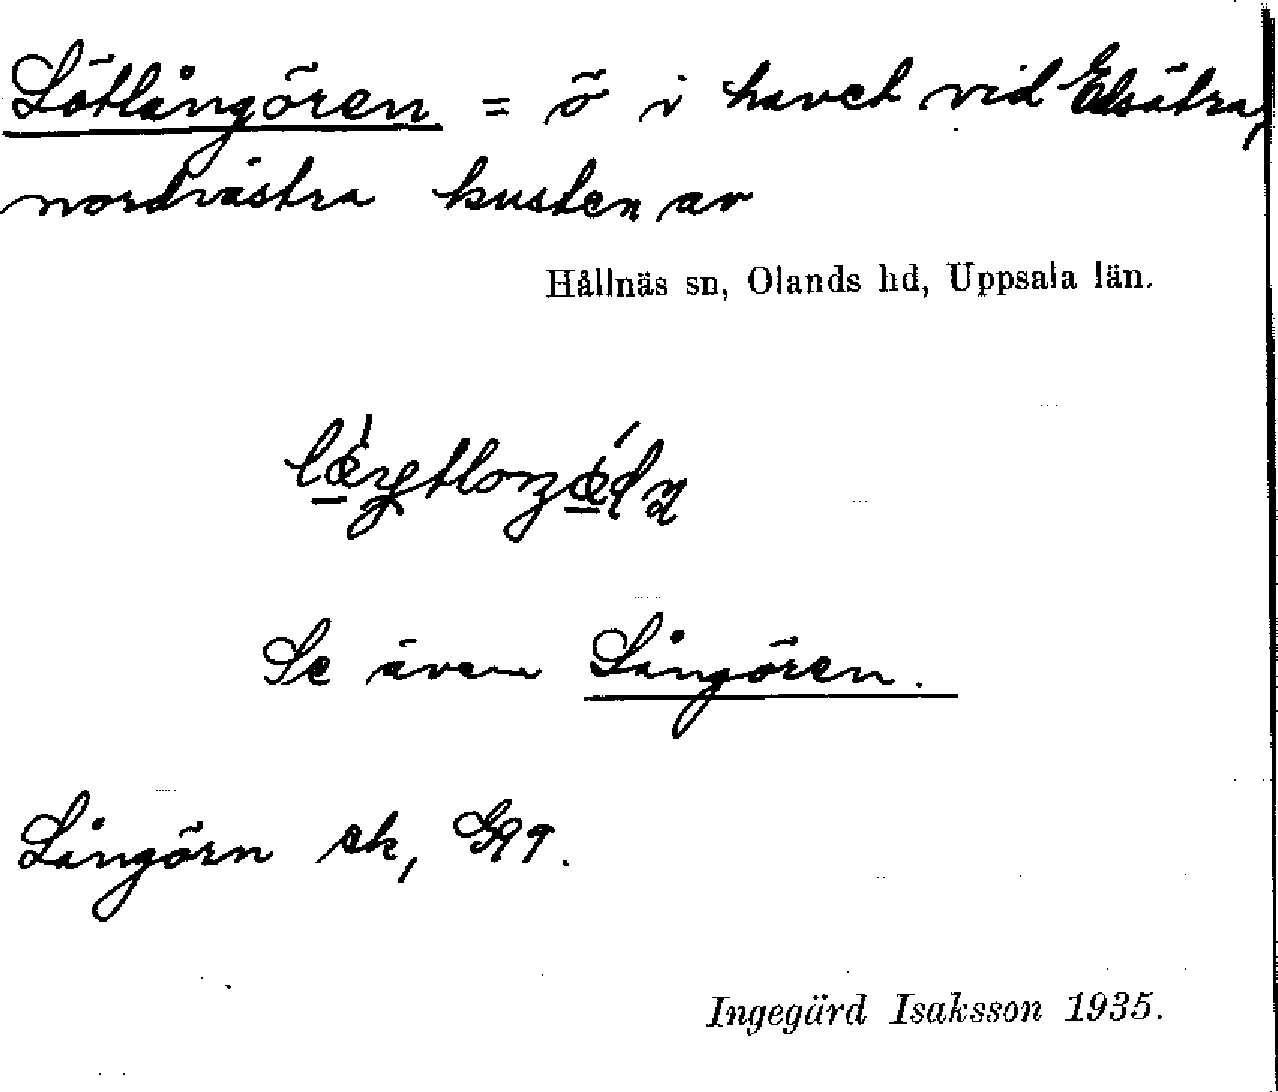 Lötlångören = ö i havet vid Elsätra,
nordvästra kusten av
Hållnäs sn, Olands hd, Uppsala län.
Se även Långören.
Långörn ek,
Ingegärd Isaksson 1935.